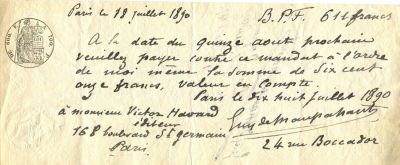 Paris le 18 juillet 1890 B.P.F. 611 francs
A la date du quinze aout prochain
veuillez payer contre ce mandat à l'ordre
de moi meme la somme de Six cent
onze francs, valeur en compte.
Paris le dix huit juillet 1890
à monsieur Victor Havard
éditeur
168 boulevard St germain
Paris
Guy de Maupassant
24 rue Boccador